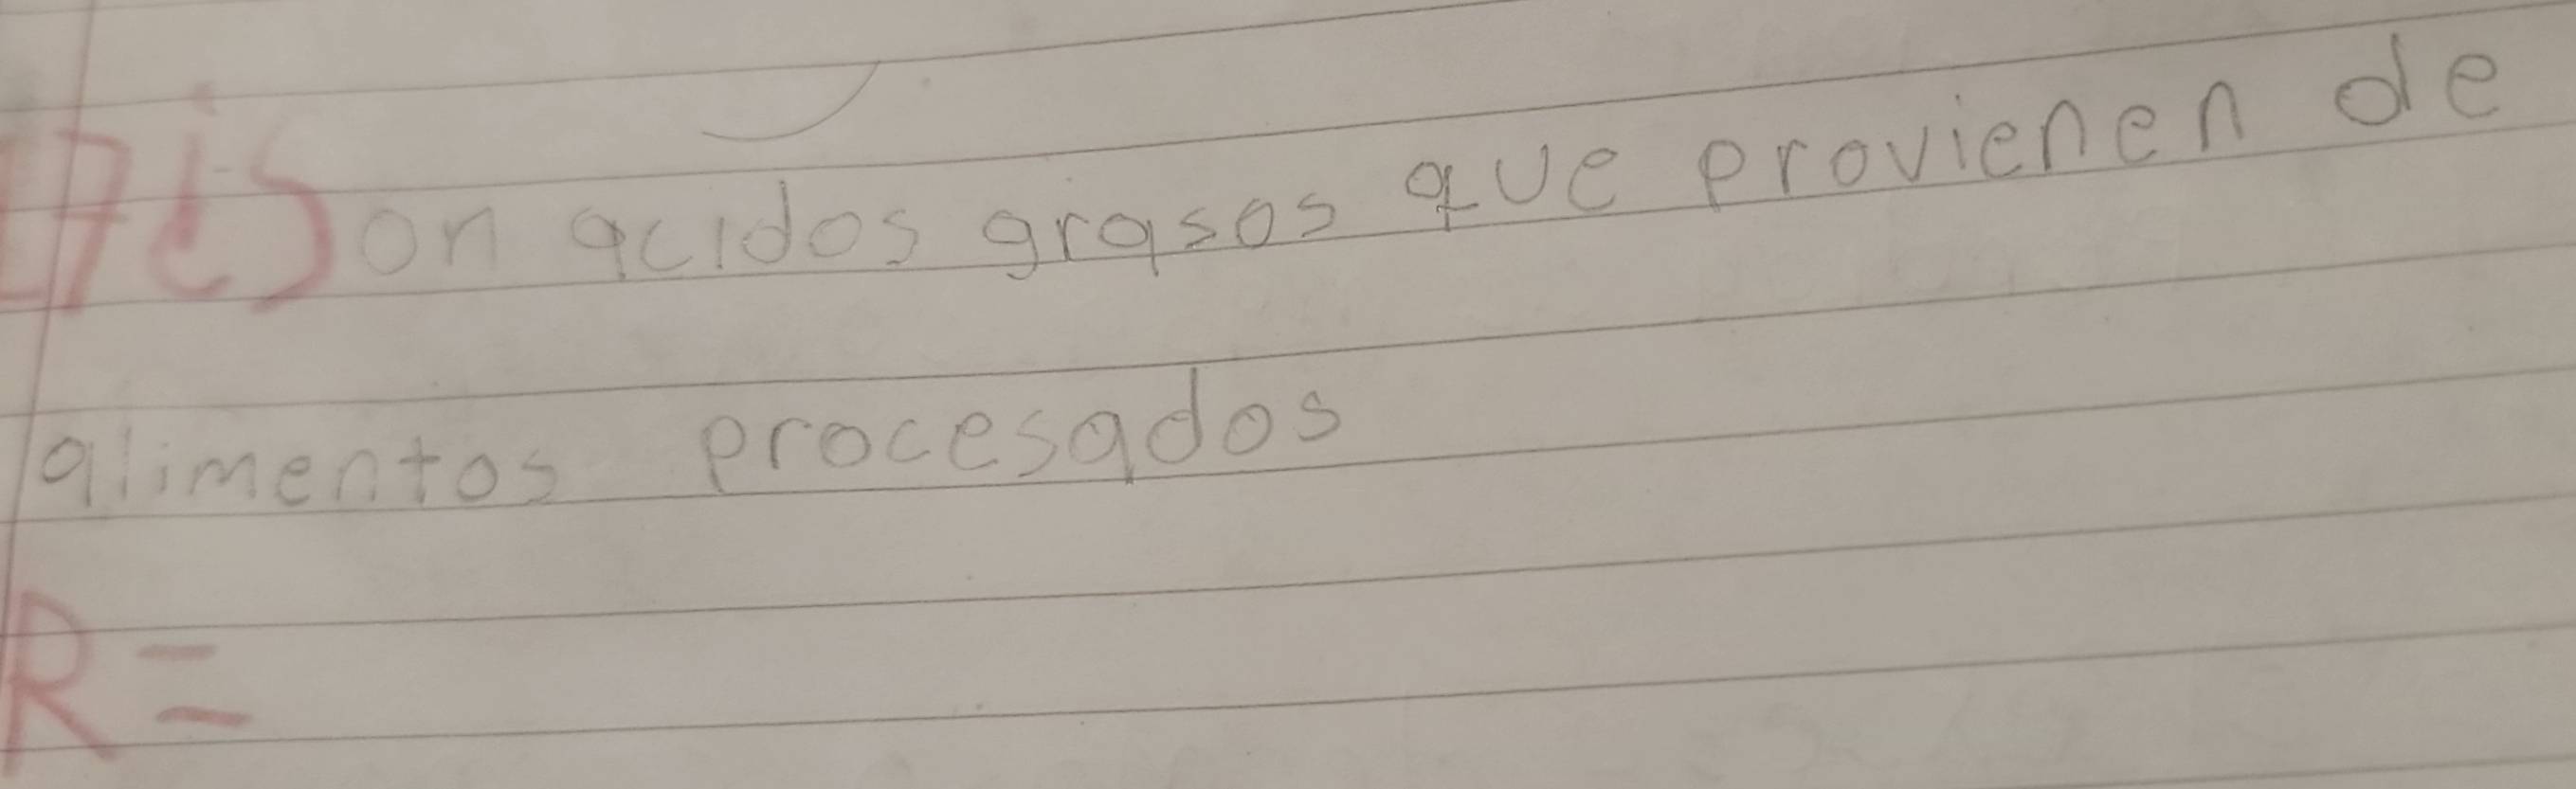 17¿Son acidos grasos que provienen de
alimentos procesados
R=